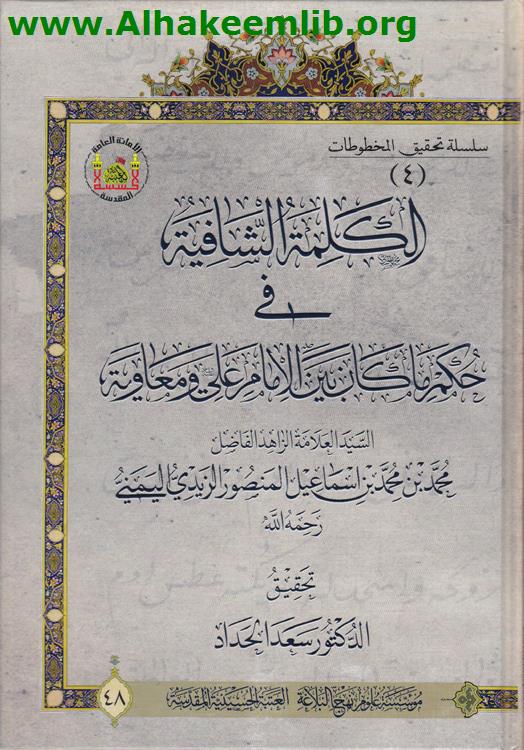 www.Alhakeemlib.org
سلسلة تحقيق المخطوطات
(٤)
الأمانة العامة
المقدسة
الكلمة الشافية
في
حكم ما كان بين الإمام علي ومعاوية
السيد العلامة الزاهد الفاضل
محمد بن محمد بن اسماعيل المنصور الزيدي اليمني
رحمه الله
تحقيق
الدكتور سعد الحداد
مؤسسة علوم نهج البلاغة العتبة الحسينية المقدسة
٤٨